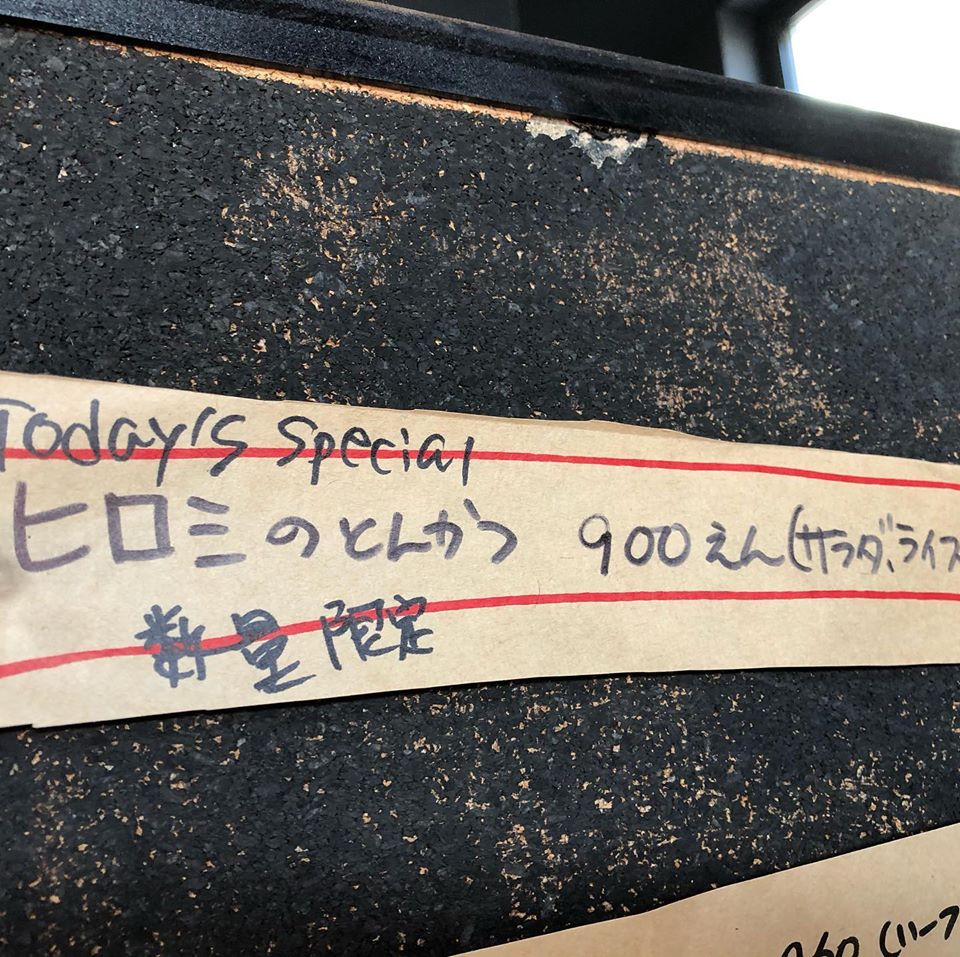 Today's special
ヒロミのとんかつ 900えん(サラダ、ライス
数量限定
960 (ハーフ